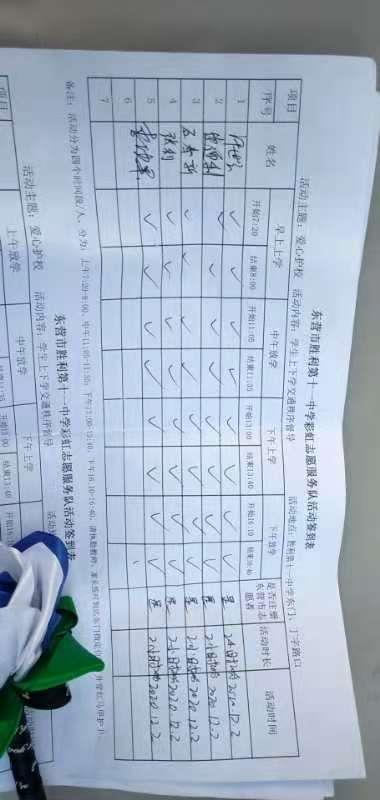 东营市胜利第十一中学彩虹志愿服务队活动签到表
活动主题：爱心护校 活动内容：学生上下学交通秩序督导 活动地点：胜利第十一中学东门、丁字路口
项目 早上上学 中午放学 下午上学 下午放学 是否注册东营市志愿者 活动时长 活动时间
序号 姓名 开始7:20 结束8:00 开始11:05 结束11:35 开始13:00 结束13:40 开始16:10 结束16:40
1 ✓ ✓ ✓ ✓ ✓ ✓ ✓ ✓ 是 2小时20 2020.12.2
2 ✓ ✓ ✓ ✓ ✓ ✓ ✓ ✓ 是 2小时20 2020.12.2
3 ✓ ✓ ✓ ✓ ✓ ✓ ✓ ✓ 是 2小时20 2020.12.2
4 张莉 ✓ ✓ ✓ ✓ ✓ ✓ ✓ ✓ 是 2小时20 2020.12.2
5 ✓ ✓ ✓ ✓ ✓ ✓ ✓ ✓ 是 2小时20 2020.12.2
6
7
备注：活动分为四个时间段/人，分为：上午7:20-8:00，中午11:05-11:35，下午13:00-13:40，下午16:10-16:40，请执勤教师、家长
东营市胜利第十一中学彩虹志愿服务队活动签到表
活动主题：爱心护校 活动内容：学生上下学交通秩序督导 活动
项目 上午放学 中午放学 下午上学
结束11:35 开始13:00 结束13:40 开始16:10